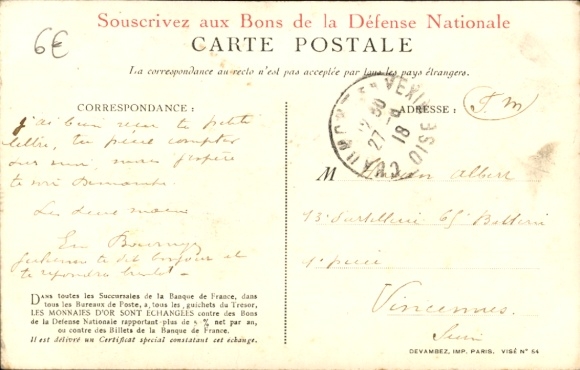 6€
Souscrivez aux Bons de la Défense Nationale
CARTE POSTALE
La correspondance au recto n'est pas acceptée par tous les pays étrangers.
CORRESPONDANCE :
J'ai bien reçu ta petite
lettre, tu peux compter
sur moi, nous j'espère
te voir Dimanche.
Les deux
En
te dit bonjour et
te répondra
DANS toutes les Succursales de la Banque de France, dans
tous les Bureaux de Poste, à tous les guichets du Trésor,
LES MONNAIES D'OR SONT ÉCHANGÉES contre des Bons
de la Défense Nationale rapportant plus de 5 % net par an,
ou contre des Billets de la Banque de France.
Il est délivré un Certificat spécial constatant cet échange.
CHAUMONT-EN-VEXIN
27 -9
18
OISE
ADRESSE :
F. M
M Albert
13e d'artillerie 65e Batterie
1e pièce
Vincennes.
Seine
DEVAMBEZ, IMP. PARIS. VISÉ N° 54